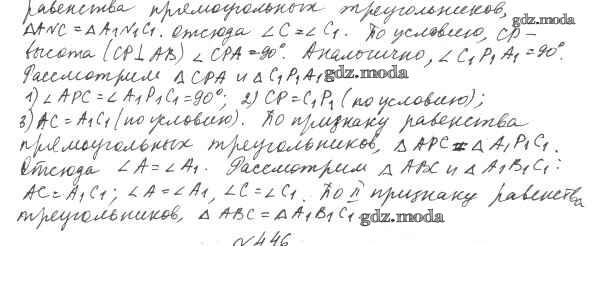 равенства прямоугольных треугольников,
△ANC = △A₁N₁C₁. Отсюда ∠C = ∠C₁. По условию, CP – gdz.moda
высота (CP⊥AB) ∠CPA = 90°. Аналогично, ∠C₁P₁A₁ = 90°.
Рассмотрим △CPA и △C₁P₁A₁ gdz.moda
1) ∠APC = ∠A₁P₁C₁ = 90°; 2) CP = C₁P₁ (по условию);
3) AC = A₁C₁ (по условию). По признаку равенства
прямоугольных треугольников, △APC = △A₁P₁C₁.
Отсюда ∠A = ∠A₁. Рассмотрим △ABC и △A₁B₁C₁:
AC = A₁C₁; ∠A = ∠A₁, ∠C = ∠C₁. По II признаку равенства
треугольников, △ABC = △A₁B₁C₁ gdz.moda
№446